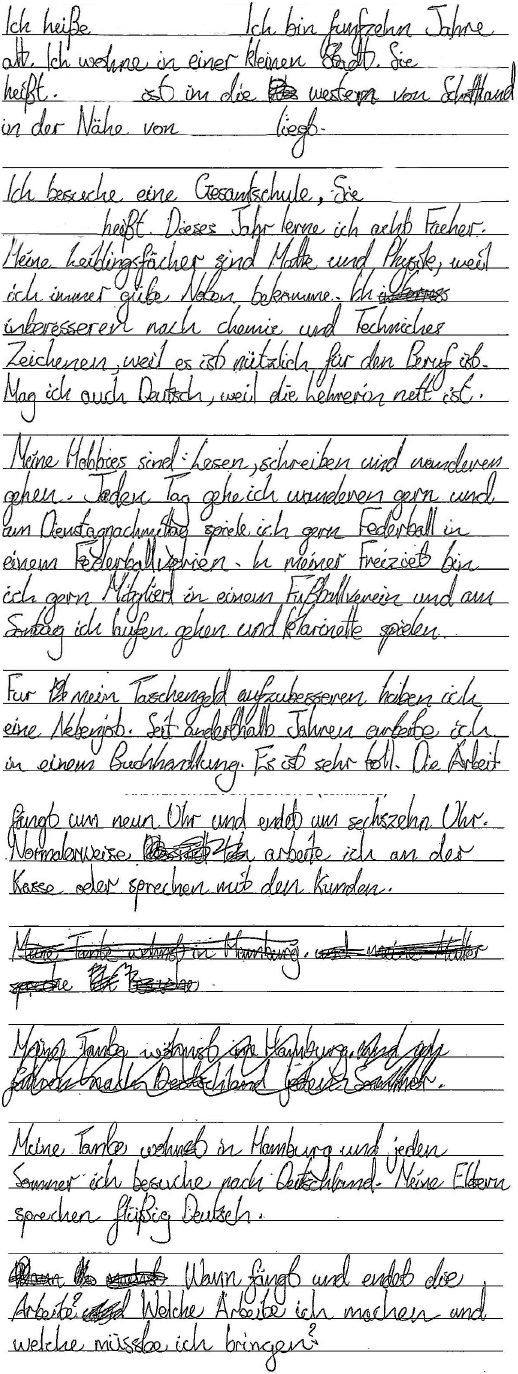 Ich heiße Ich bin funfzehn Jahre
alt. Ich wohne in einer kleinen Stadt. Sie
heißt. ist im die western von Schottland
in der Nähe von liegt.
Ich besuche eine Gesamtschule, Sie
heißt. Dieses Jahr lerne ich acht Facher.
Meine Leiblingsfächer sind Mathe und Physik, weil
ich immer gute Noten bekomme. Ich
interesseren nach chemie und Techniches
Zeichenen, weil es ist nützlich für den Beruf ist.
Mag ich auch Deutsch, weil die Lehrerin nett ist.
Meine Hobbies sind: Lesen, schreiben und wanderen
gehen. Jeden Tag gehe ich wanderen gern und
am Dienstagnachmittag spiele ich gern Federball in
einem Federballverien. In meiner Freiziet bin
ich gern Mitglied in einem Fußballverein und am
ich laufen gehen und klarinette spielen.
Fur mein Taschengeld aufzubesseren haben ich
eine Nebenjob. Seit anderthalb Jahren arbeite ich
in einem Buchhandlung. Es ist sehr toll. Die Arbeit
fängt um neun Uhr und endet um sechszehn Uhr.
Normalerweise arbeite ich an der
Kasse oder sprechen mit den Kunden.
Meine Tante wohnt in Hamburg. und meine Mutter
Meine Tante wohnst in Hamburg und ich
fahren nach Deutschland jeden Sommer.
Meine Tante wohnet in Hamburg und jeden
Sommer ich besuche nach Deutschland. Meine Eltern
sprechen flüßig Deutsch.
Wann fängt und endet die
Arbeite? Welche Arbeite ich machen und
welche müsste ich bringen?